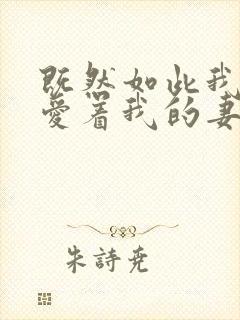 既然如此我
爱着我的妻
朱诗尧